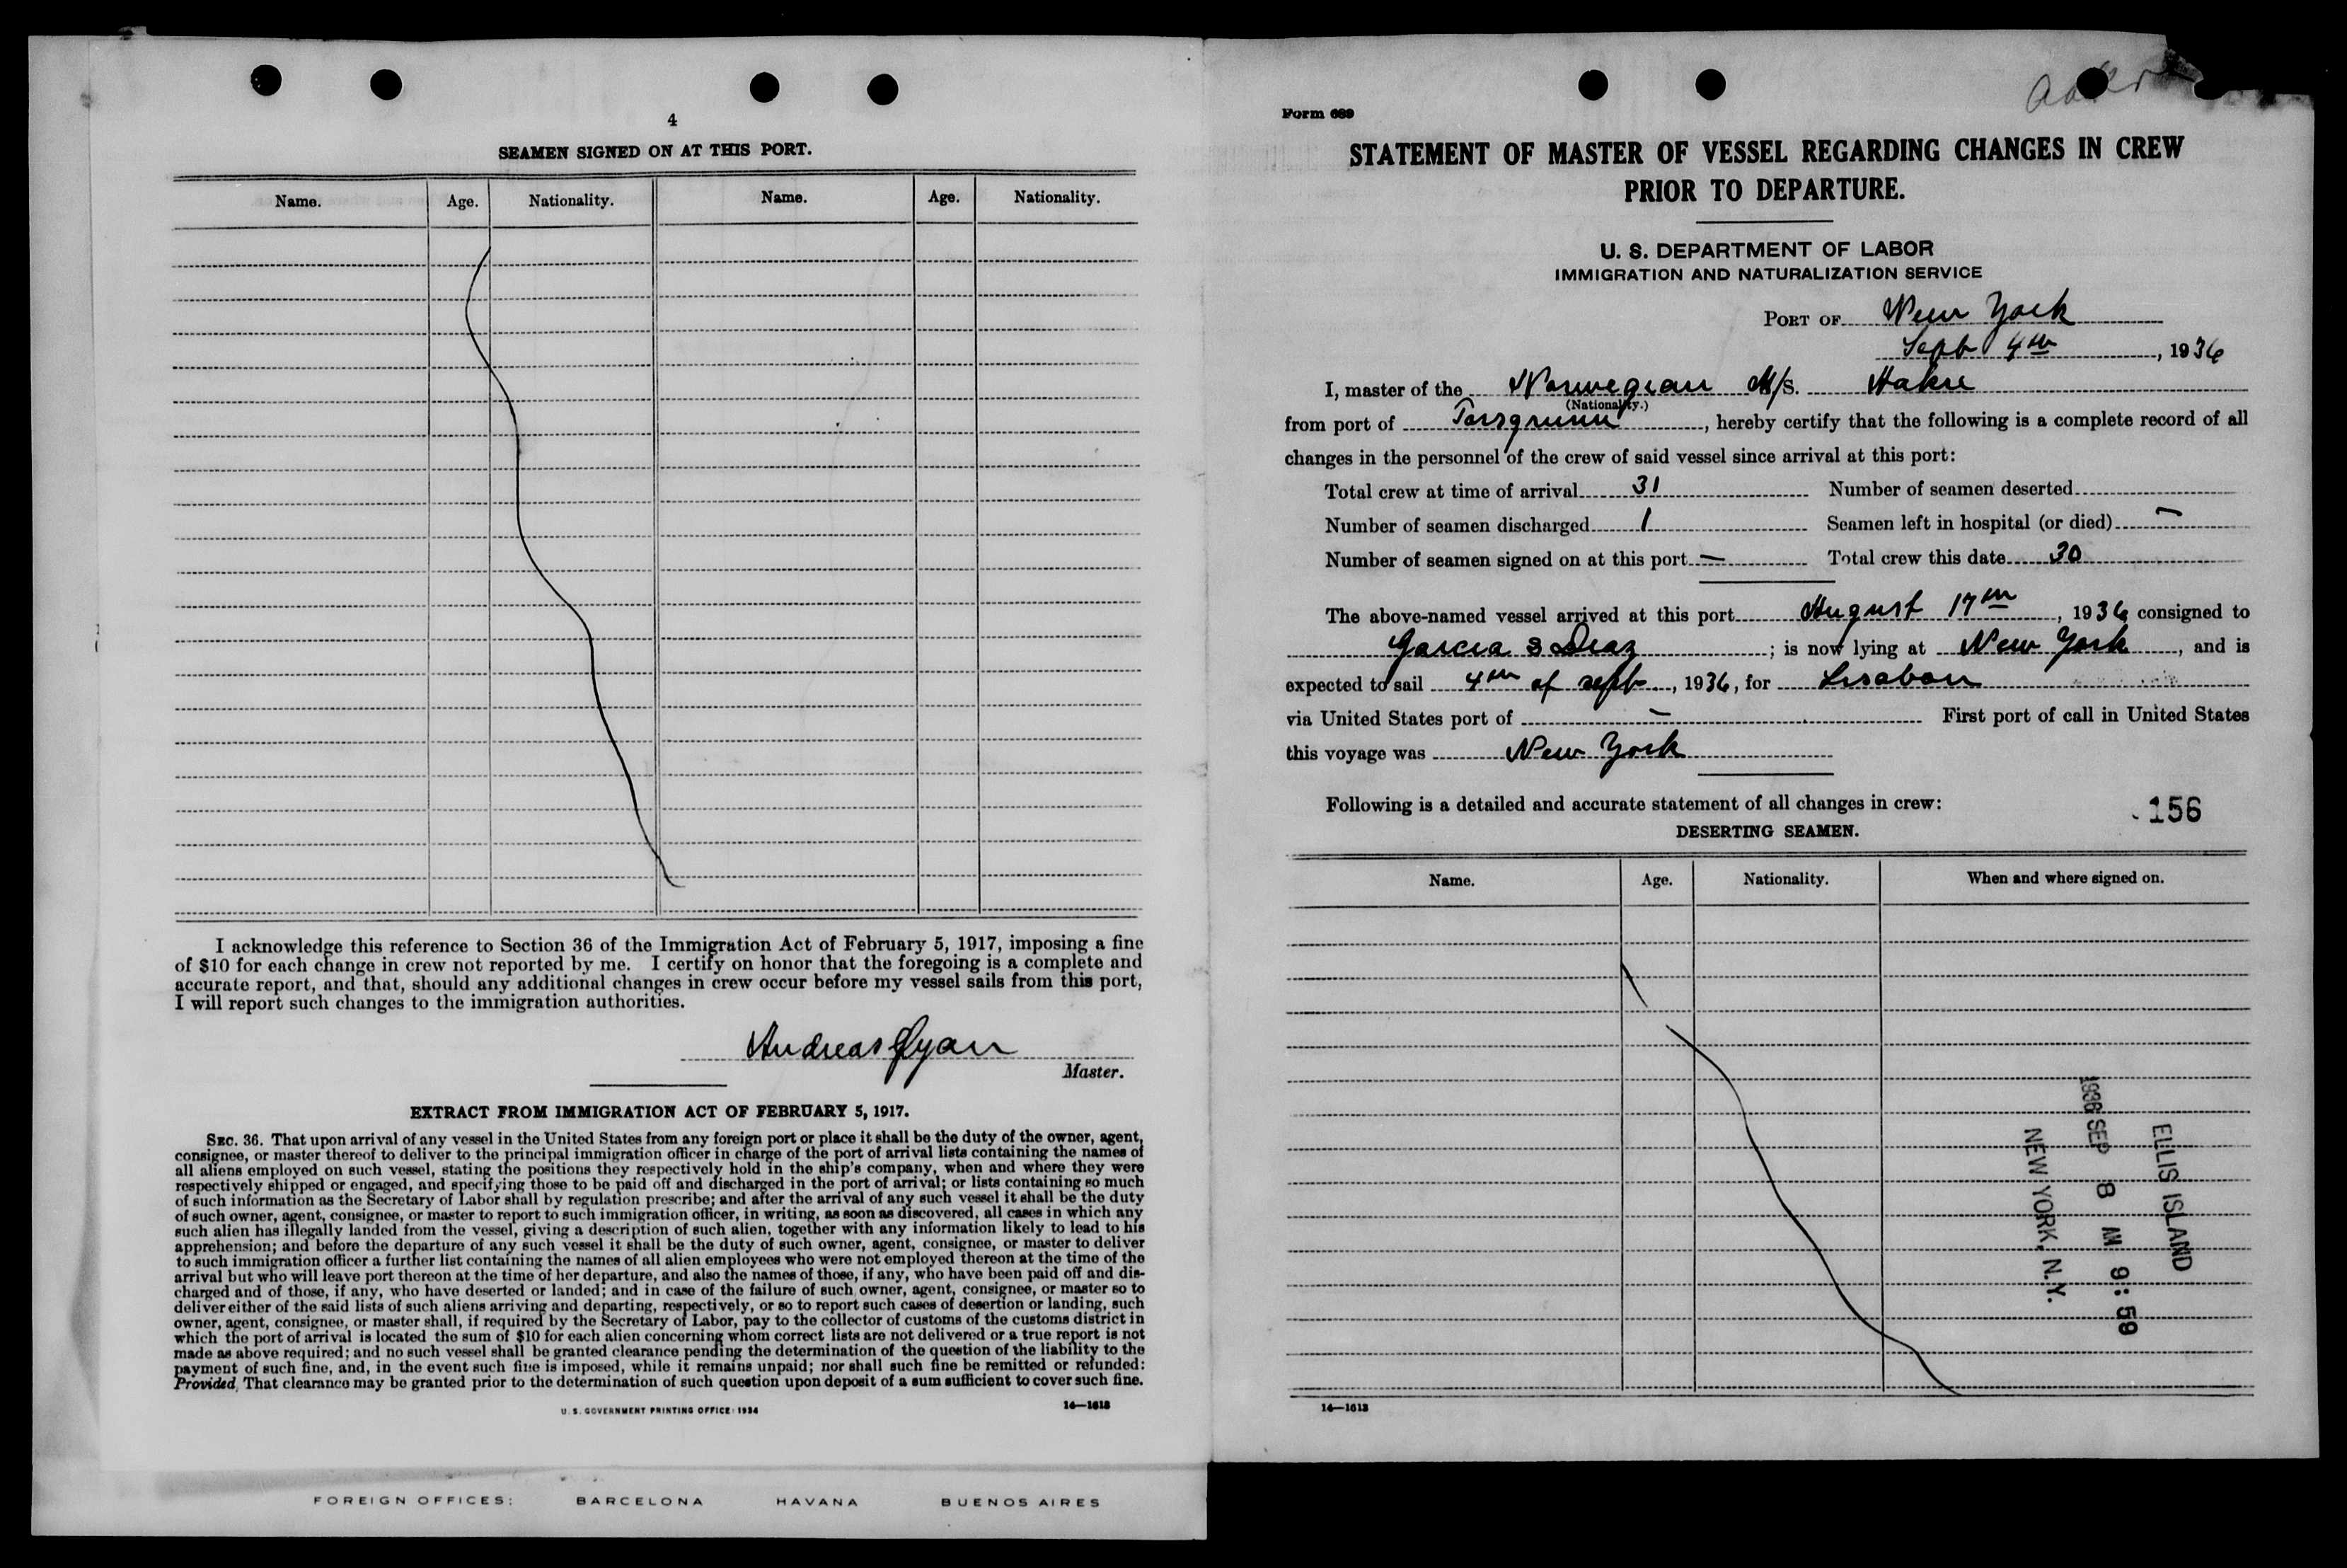 4
SEAMEN SIGNED ON AT THIS PORT.
Name. Age. Nationality. Name. Age. Nationality.
I acknowledge this reference to Section 36 of the Immigration Act of February 5, 1917, imposing a fine
of $10 for each change in crew not reported by me. I certify on honor that the foregoing is a complete and
accurate report, and that, should any additional changes in crew occur before my vessel sails from this port,
I will report such changes to the immigration authorities.
Andreas
Master.
EXTRACT FROM IMMIGRATION ACT OF FEBRUARY 5, 1917.
SEC. 36. That upon arrival of any vessel in the United States from any foreign port or place it shall be the duty of the owner, agent,
consignee, or master thereof to deliver to the principal immigration officer in charge of the port of arrival lists containing the names of
all aliens employed on such vessel, stating the positions they respectively hold in the ship's company, when and where they were
respectively shipped or engaged, and specifying those to be paid off and discharged in the port of arrival; or lists containing so much
of such information as the Secretary of Labor shall by regulation prescribe; and after the arrival of any such vessel it shall be the duty
of such owner, agent, consignee, or master to report to such immigration officer, in writing, as soon as discovered, all cases in which any
such alien has illegally landed from the vessel, giving a description of such alien, together with any information likely to lead to his
apprehension; and before the departure of any such vessel it shall be the duty of such owner, agent, consignee, or master to deliver
to such immigration officer a further list containing the names of all alien employees who were not employed thereon at the time of the
arrival but who will leave port thereon at the time of her departure, and also the names of those, if any, who have been paid off and dis-
charged and of those, if any, who have deserted or landed; and in case of the failure of such owner, agent, consignee, or master so to
deliver either of the said lists of such aliens arriving and departing, respectively, or so to report such cases of desertion or landing, such
owner, agent, consignee, or master shall, if required by the Secretary of Labor, pay to the collector of customs of the customs district in
which the port of arrival is located the sum of $10 for each alien concerning whom correct lists are not delivered or a true report is not
made as above required; and no such vessel shall be granted clearance pending the determination of the question of the liability to the
payment of such fine, and, in the event such fine is imposed, while it remains unpaid; nor shall such fine be remitted or refunded:
Provided, That clearance may be granted prior to the determination of such question upon deposit of a sum sufficient to cover such fine.
U. S. GOVERNMENT PRINTING OFFICE: 1934 14—1613
FOREIGN OFFICES: BARCELONA HAVANA BUENOS AIRES
Form 689
STATEMENT OF MASTER OF VESSEL REGARDING CHANGES IN CREW
PRIOR TO DEPARTURE.
U. S. DEPARTMENT OF LABOR
IMMIGRATION AND NATURALIZATION SERVICE
PORT OF New York
Sept 4th, 1936
I, master of the Norwegian M/S.
(Nationality.)
from port of , hereby certify that the following is a complete record of all
changes in the personnel of the crew of said vessel since arrival at this port:
Total crew at time of arrival 31 Number of seamen deserted
Number of seamen discharged 1 Seamen left in hospital (or died) —
Number of seamen signed on at this port — Total crew this date 30
The above-named vessel arrived at this port August 17th, 1936 consigned to
Garcia & Diaz ; is now lying at New York, and is
expected to sail 4th of sept, 1936, for Lisabon
via United States port of — First port of call in United States
this voyage was New York
Following is a detailed and accurate statement of all changes in crew: 156
DESERTING SEAMEN.
Name. Age. Nationality. When and where signed on.
ELLIS ISLAND
1936 SEP 8 AM 9:59
NEW YORK, N.Y.
14—1613